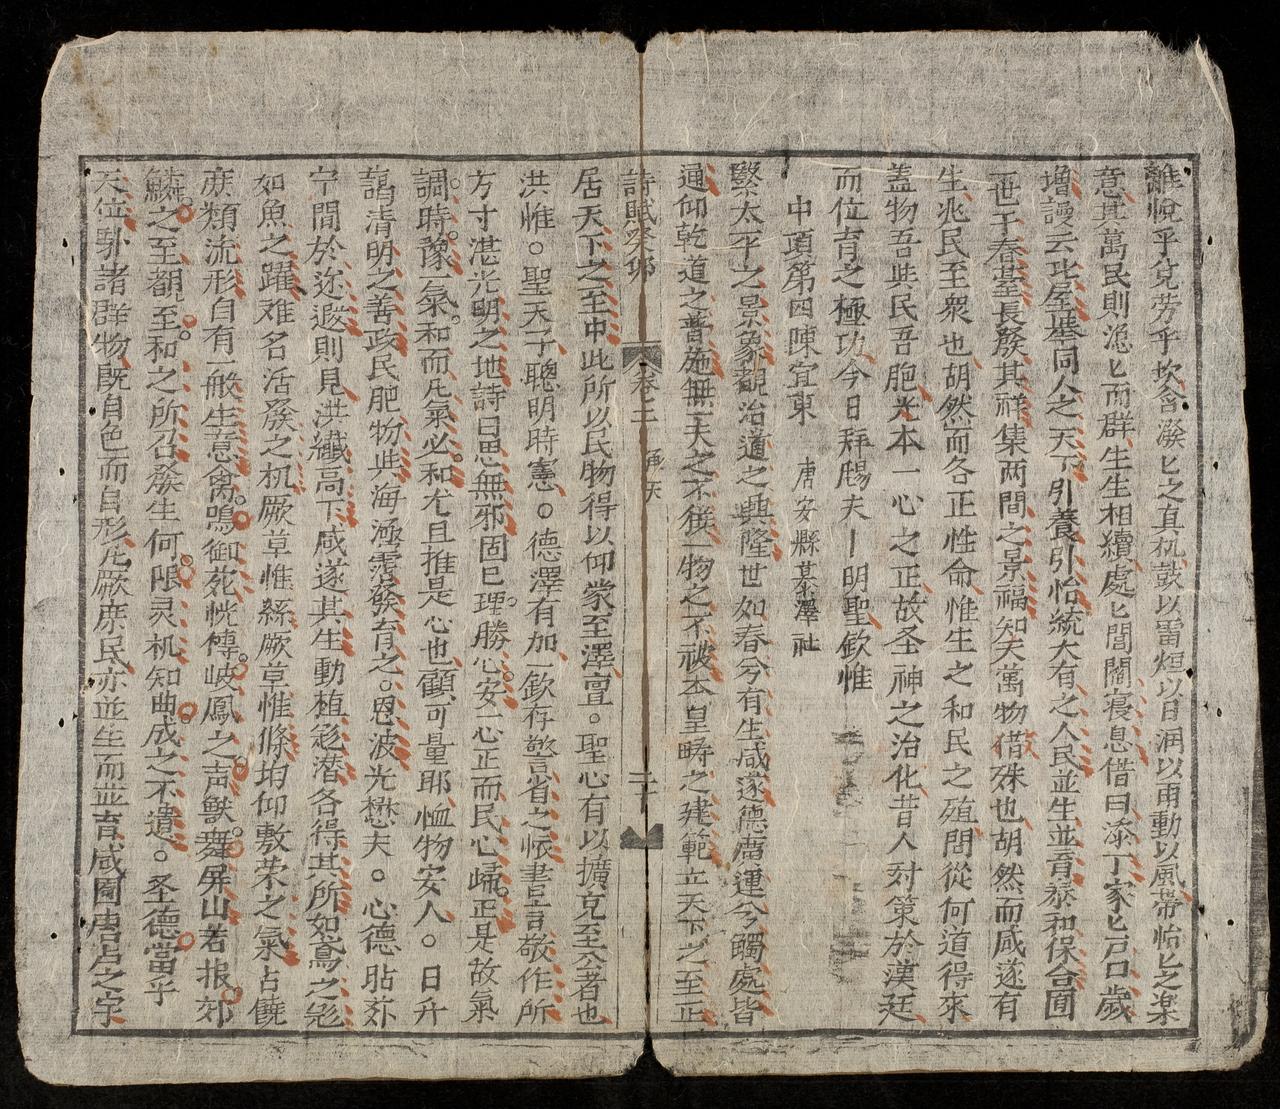 離悅乎兌芳乎坎含發匕之真机鼓以雷烜以日潤以雨動以風帶怡匕之楽
意其萬民則漁匕而群生生相續處匕閭閻寝息借曰添丁家匕戸口歲
增謾云比屋基同人之天下引養引怡統大有之人民並生並育泰和保合囿
一世于春䑓長發其祥集両間之景福知夫萬物偕殊也胡然而咸遂有
生兆民至衆也胡然而各正性命惟生之和民之殖問從何道得來
蓋物吾與民吾胞光本一心之正故圣神之治化昔人対策於漢廷
而位育之極功今日拜賜夫一明聖欽惟
中項第四陳宜東 唐安縣慕澤社
緊太平之景象観治道之興隆世如春兮有生咸遂德廣運兮觸處皆
通仰乾道之普施無一夫之不獲一物之不被本皇疇之建範立天下之至正
詩賦癸卯 卷之二 承天 二十
居天下之至中此所以民物得以仰蒙至澤亶。聖心有以擴克至公者也
洪惟。聖天子聰明時憲。德澤有加一欽存警省之悵書言敬作所
方寸湛光明之地詩曰思無邪固已理勝心安一心正而民心歸正是故氣
調時豫氣和而凡氣必和尤且推是心也顧可量耶恤物安人。日升
謁清明之善政民肥物與海涵霈發育之。恩波光懋夫。心德貼芥
宁間於迩遐則見洪纖高下咸遂其生動植迯潜各得其所如鳶之迯
如魚之躍难名活發之机厥草惟繇厥草惟條均仰敷荣之氣占饒
庶類流形自有一般生意禽鳴御苑恍轉岐鳳之声獣舞屏山若报郊
麟之至都至和之所召發生何限灵机知曲成之不遺。圣德當乎
天位馿諸群物既自色而自形凡厥庶民亦並生而並育咸囿唐虞之宇